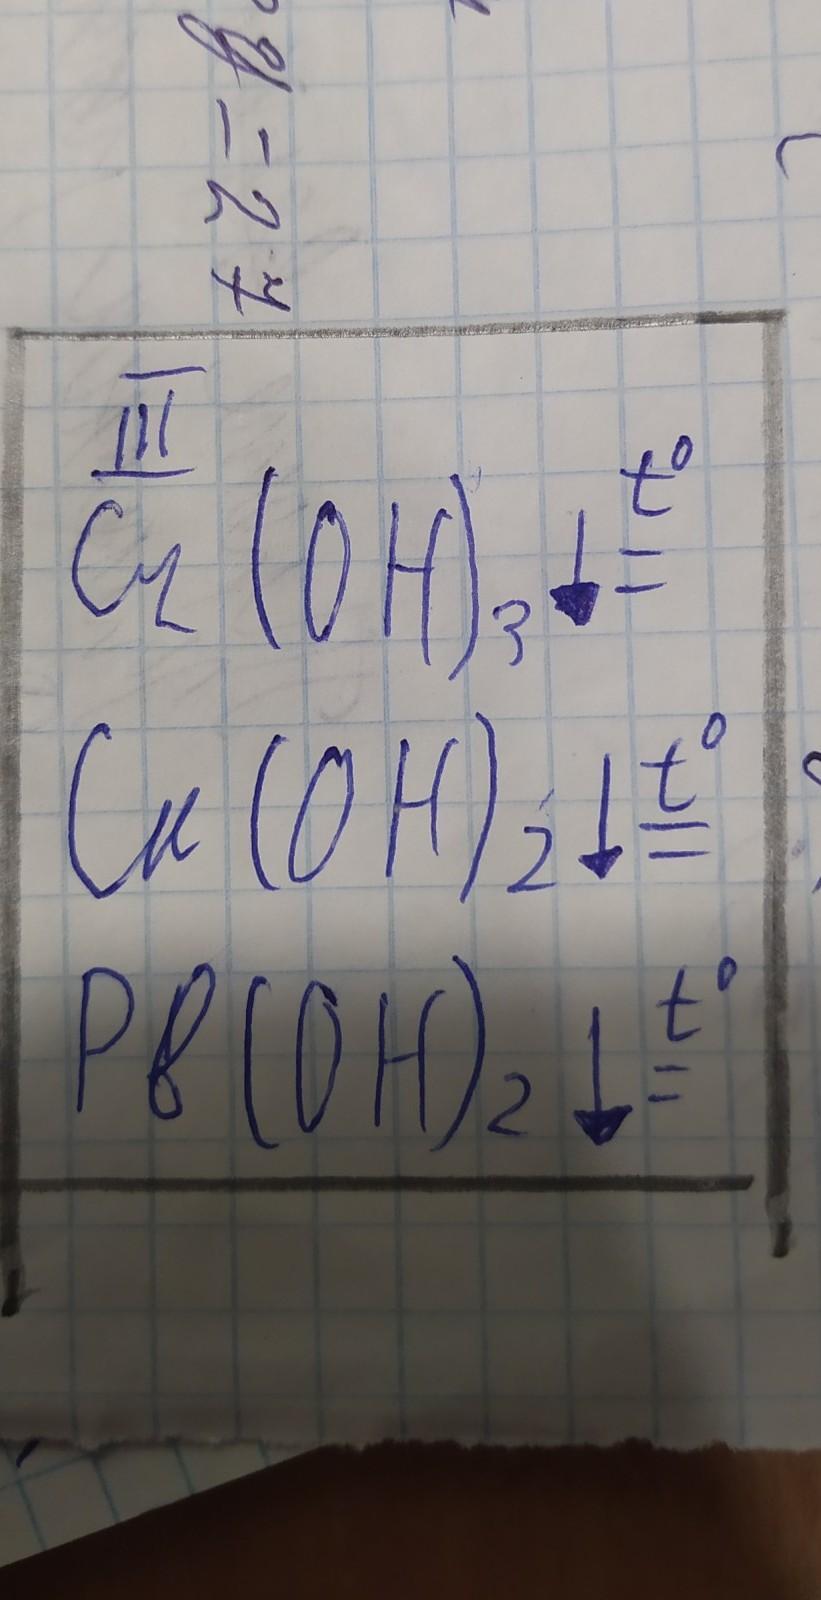 y = 27
III
Cr(OH)₃↓ t° =
Cu(OH)₂↓ t° =
Pb(OH)₂↓ t° =